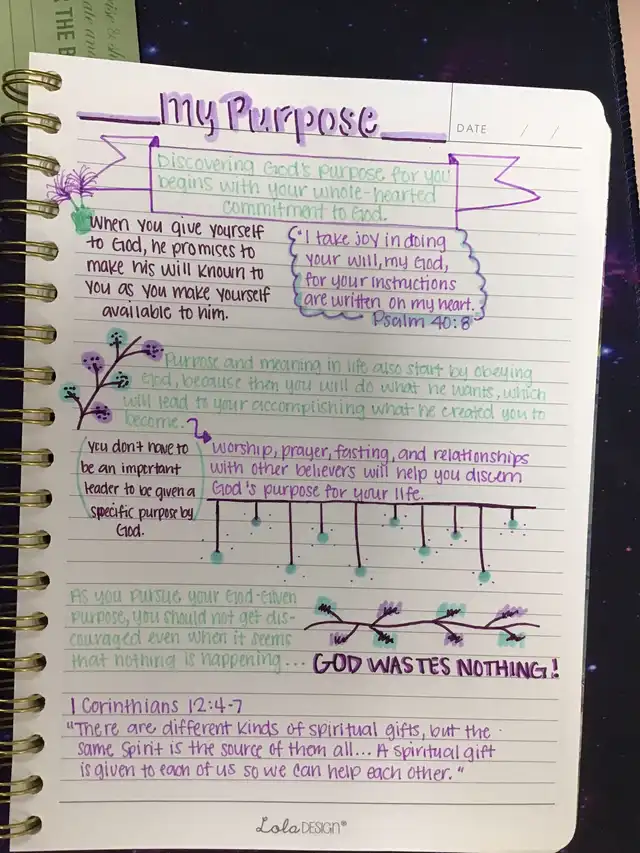 THE B
my Purpose
DATE / /
Discovering God's purpose for you
begins with your whole-hearted
commitment to God.
When you give yourself
to God, he promises to
make his will known to
you as you make yourself
available to him.
"I take joy in doing
your will, my God,
for your instructions
are written on my heart."
Psalm 40:8
Purpose and meaning in life also start by obeying
God, because then you will do what he wants, which
will lead to your accomplishing what he created you to
become.
you don't have to
be an important
leader to be given a
specific purpose by
God.
worship, prayer, fasting, and relationships
with other believers will help you discern
God's purpose for your life.
As you pursue your God-given
purpose, you should not get dis-
couraged even when it seems
that nothing is happening...
GOD WASTES NOTHING!
1 Corinthians 12:4-7
"There are different kinds of spiritual gifts, but the
same Spirit is the source of them all... A spiritual gift
is given to each of us so we can help each other."
Lola DESIGN®